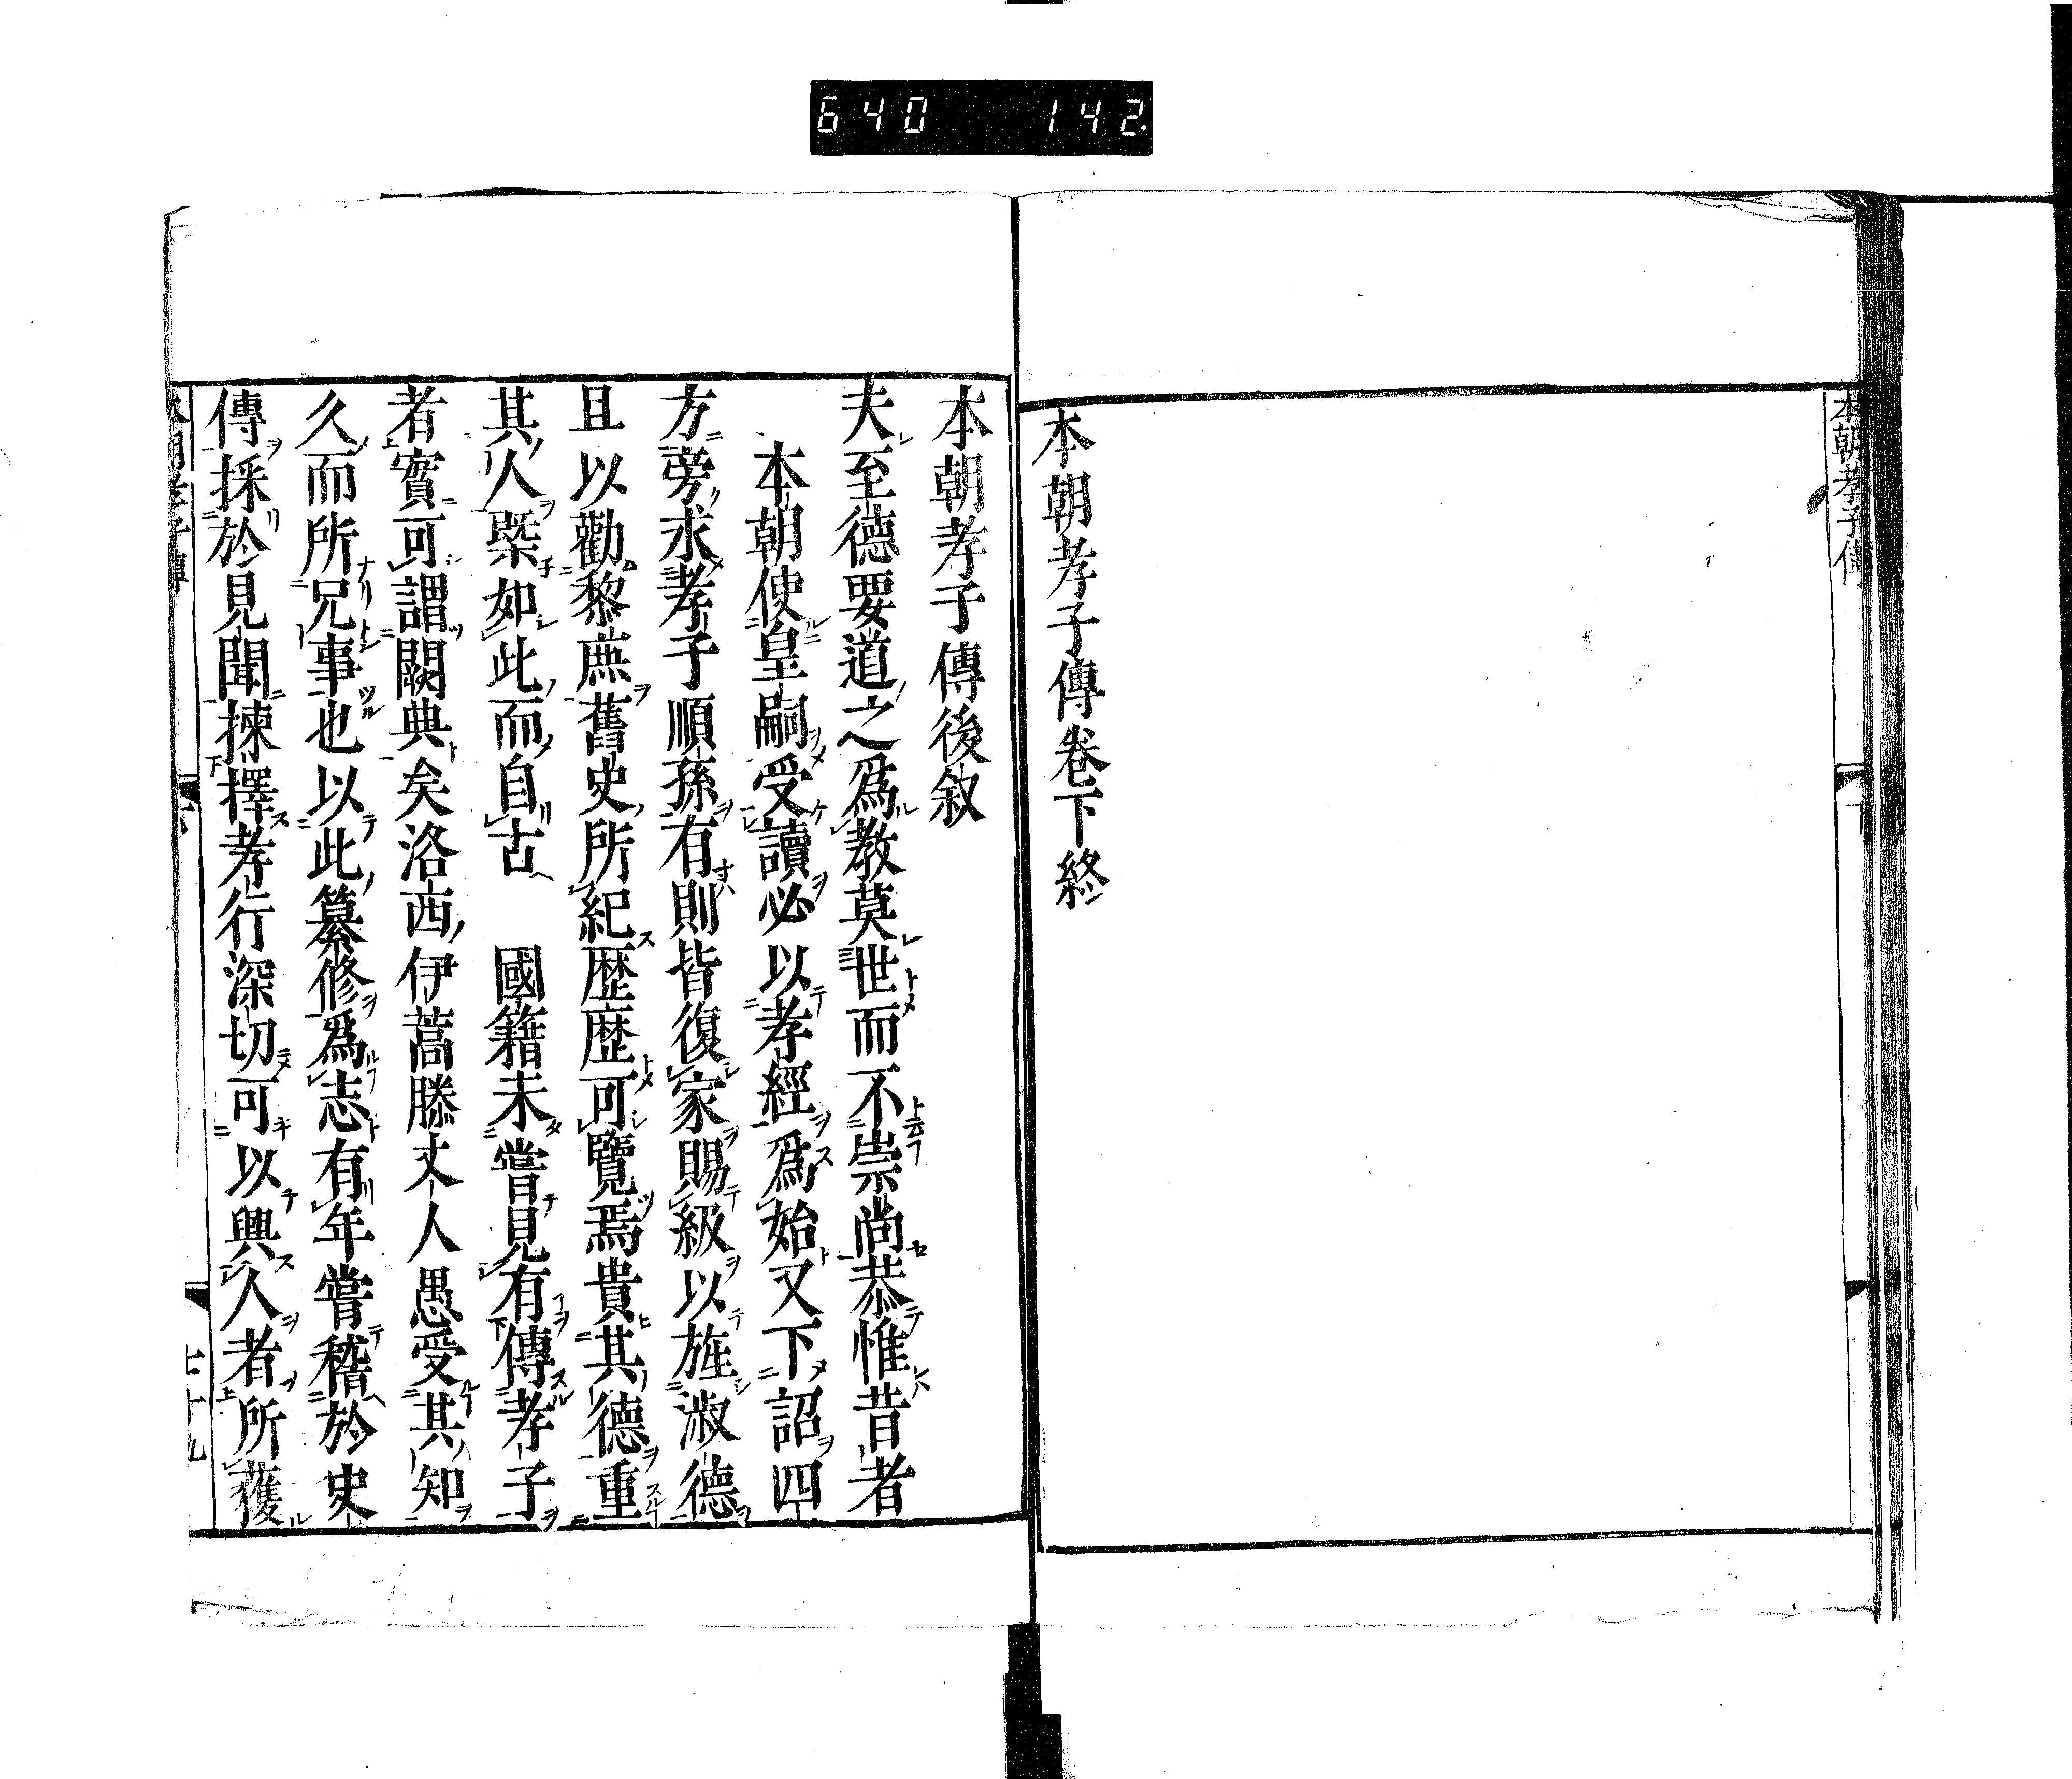 640 142.
本朝孝子傳
下
本朝孝子傳卷下終
本朝孝子傳後敘
夫至德要道之爲教莫世而不崇尚恭惟昔者
本朝使皇嗣受讀必以孝經爲始又下詔四
方旁求孝子順孫有則皆復家賜級以旌淑德
且以勸黎庶舊史所紀歷歷可覽焉貴其德重
其人槩如此而自古 國籍未嘗見有傳孝子
者實可謂闕典矣洛西伊蒿滕丈人愚受其知
久而所兄事也以此纂修爲志有年嘗稽於史
傳採於見聞揀擇孝行深切可以興人者所獲
本朝孝子傳